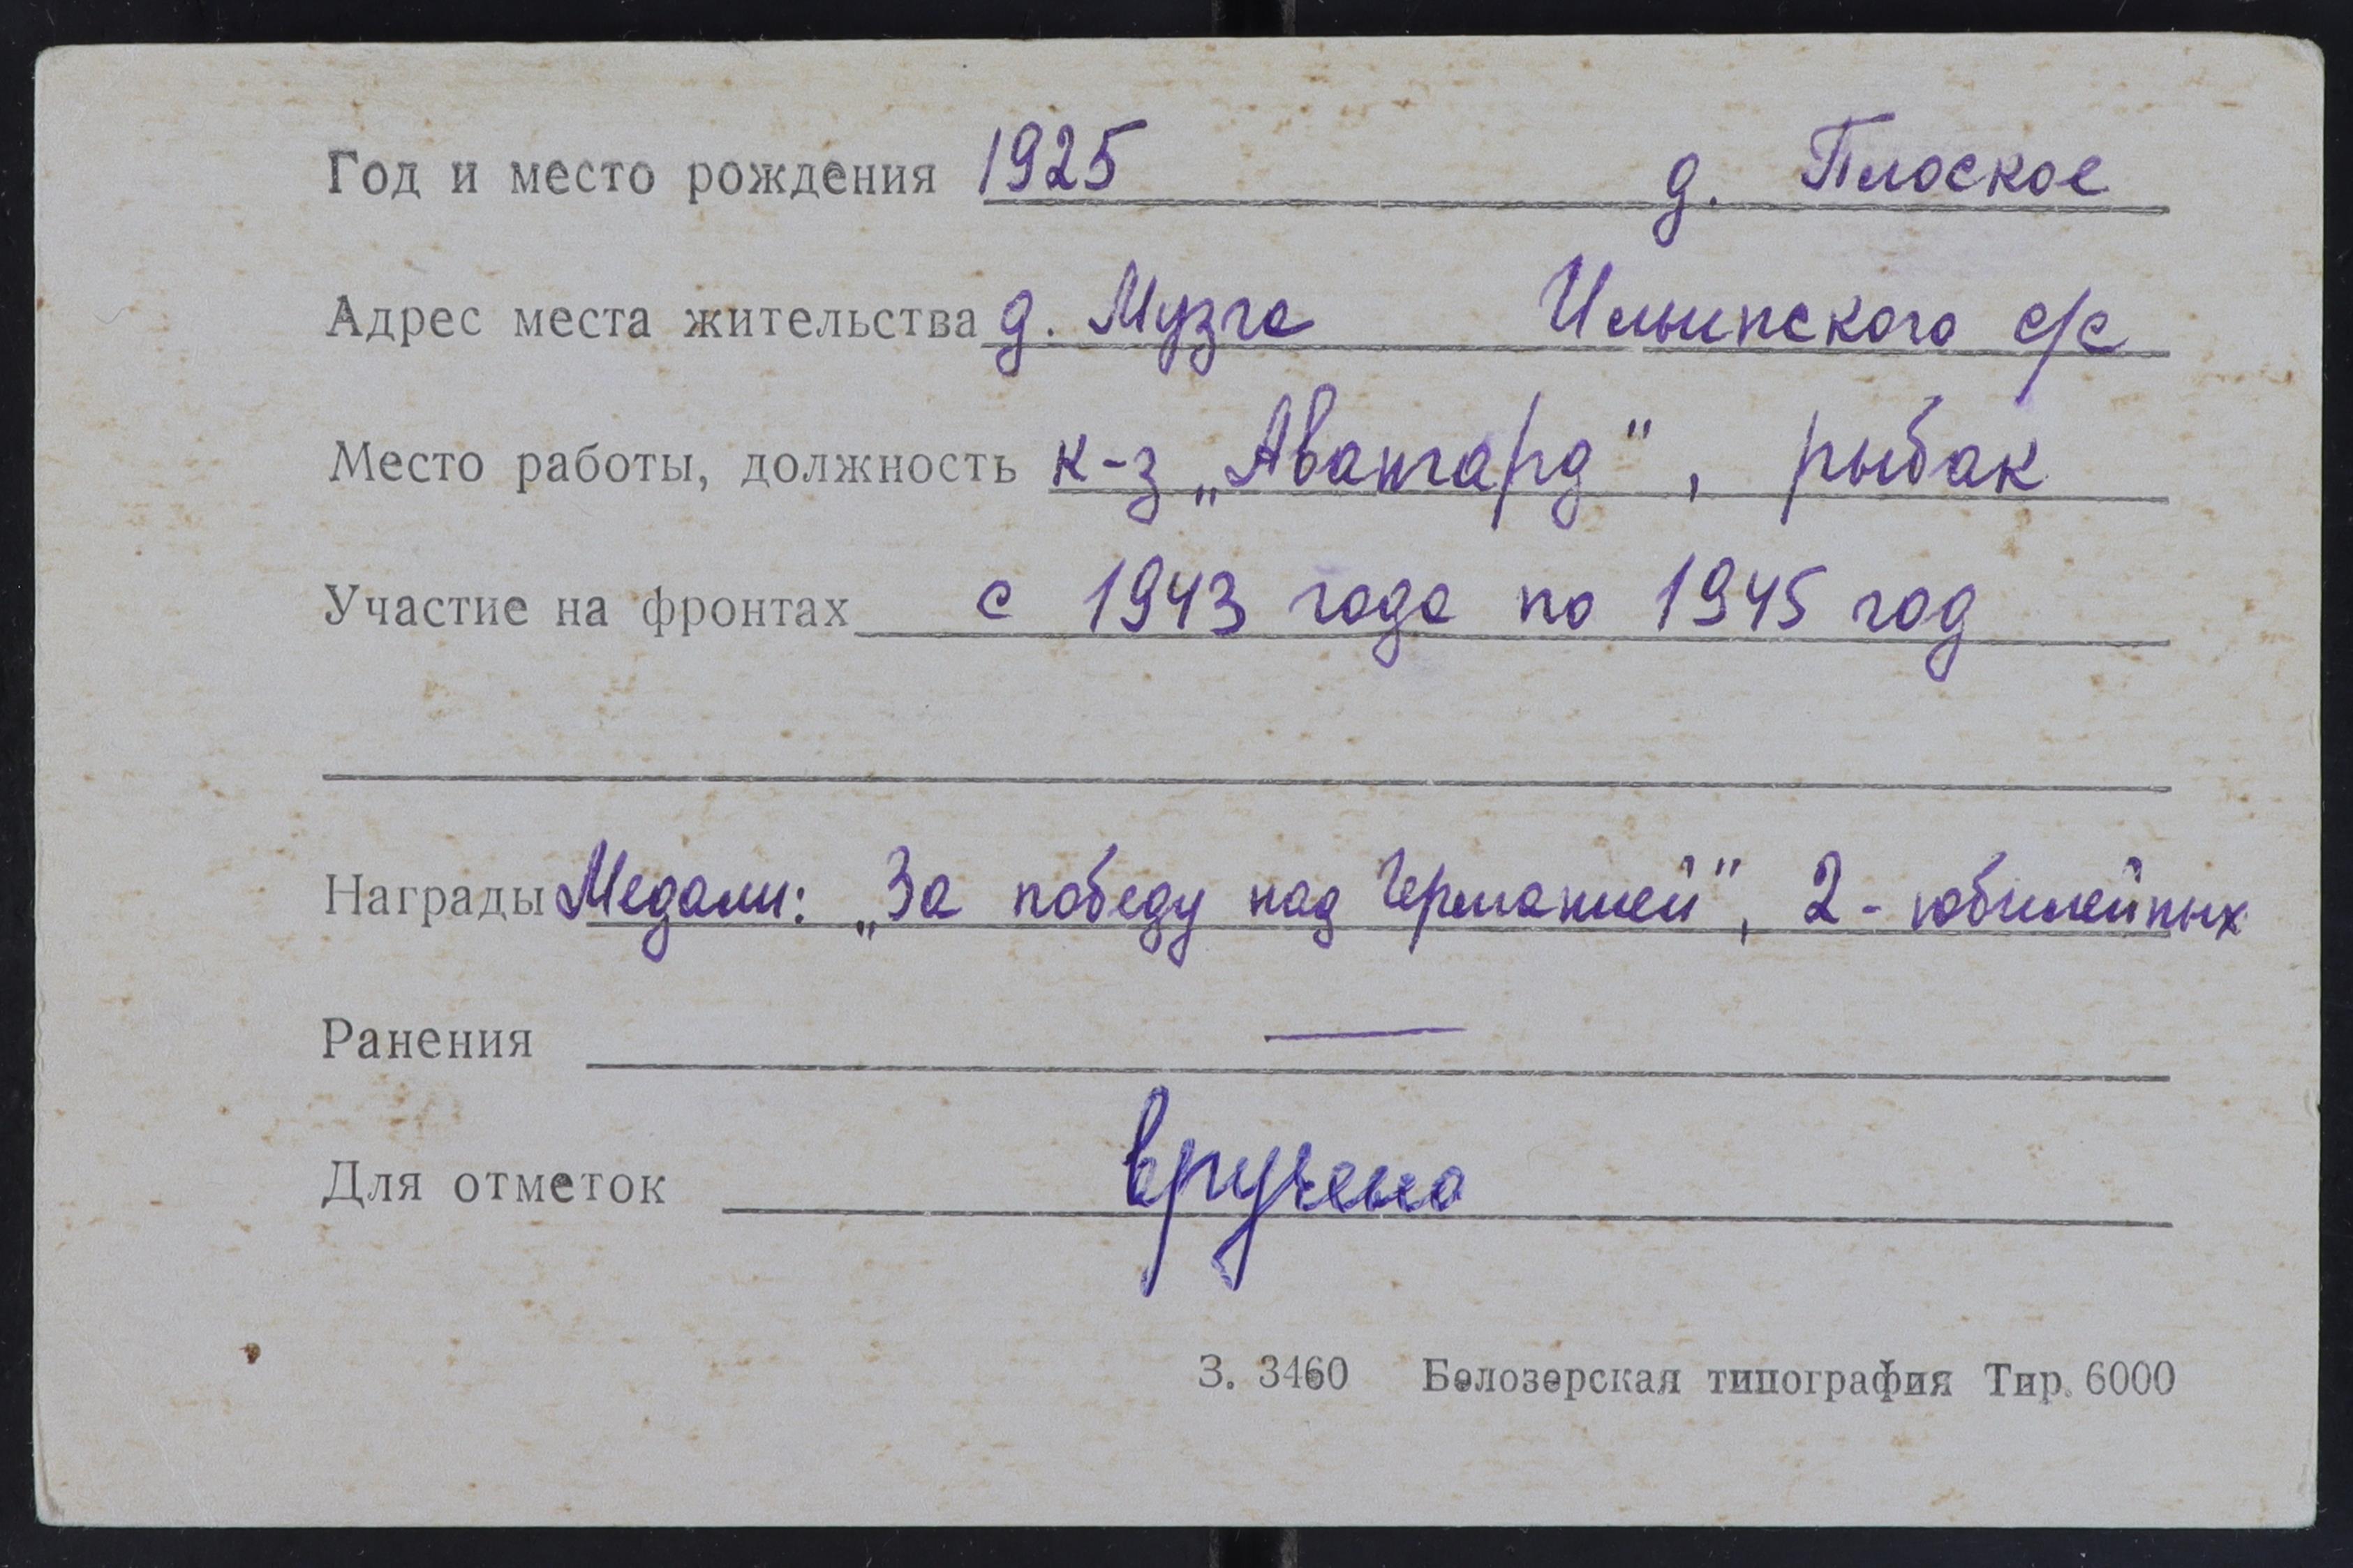 Год и место рождения 1925 д. Плоское
Адрес места жительства д. Музга Ильинского с/с
Место работы, должность к-з „Авангард", рыбак
Участие на фронтах с 1943 года по 1945 год
Награды Медали: „За победу над Германией", 2 - юбилейных
Ранения —
Для отметок вручено
З. 3460 Белозерская типография Тир. 6000